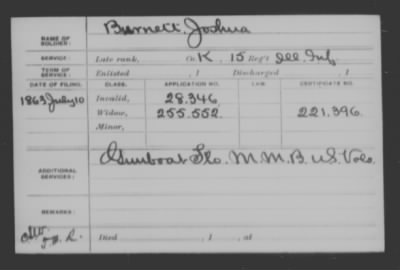 NAME OF SOLDIER: Burnett, Joshua
SERVICE: Late rank, Co. K, 15 Reg't Ill. Inf.
TERM OF SERVICE: Enlisted , 1 Discharged , 1
DATE OF FILING. CLASS. APPLICATION NO. LAW. CERTIFICATE NO.
1863 July 10 Invalid, 28.346
Widow, 255.552 221.396
Minor,
ADDITIONAL SERVICES: Gunboat Flo. M.M.B. U.S. Vols.
REMARKS:
Died , 1 , at